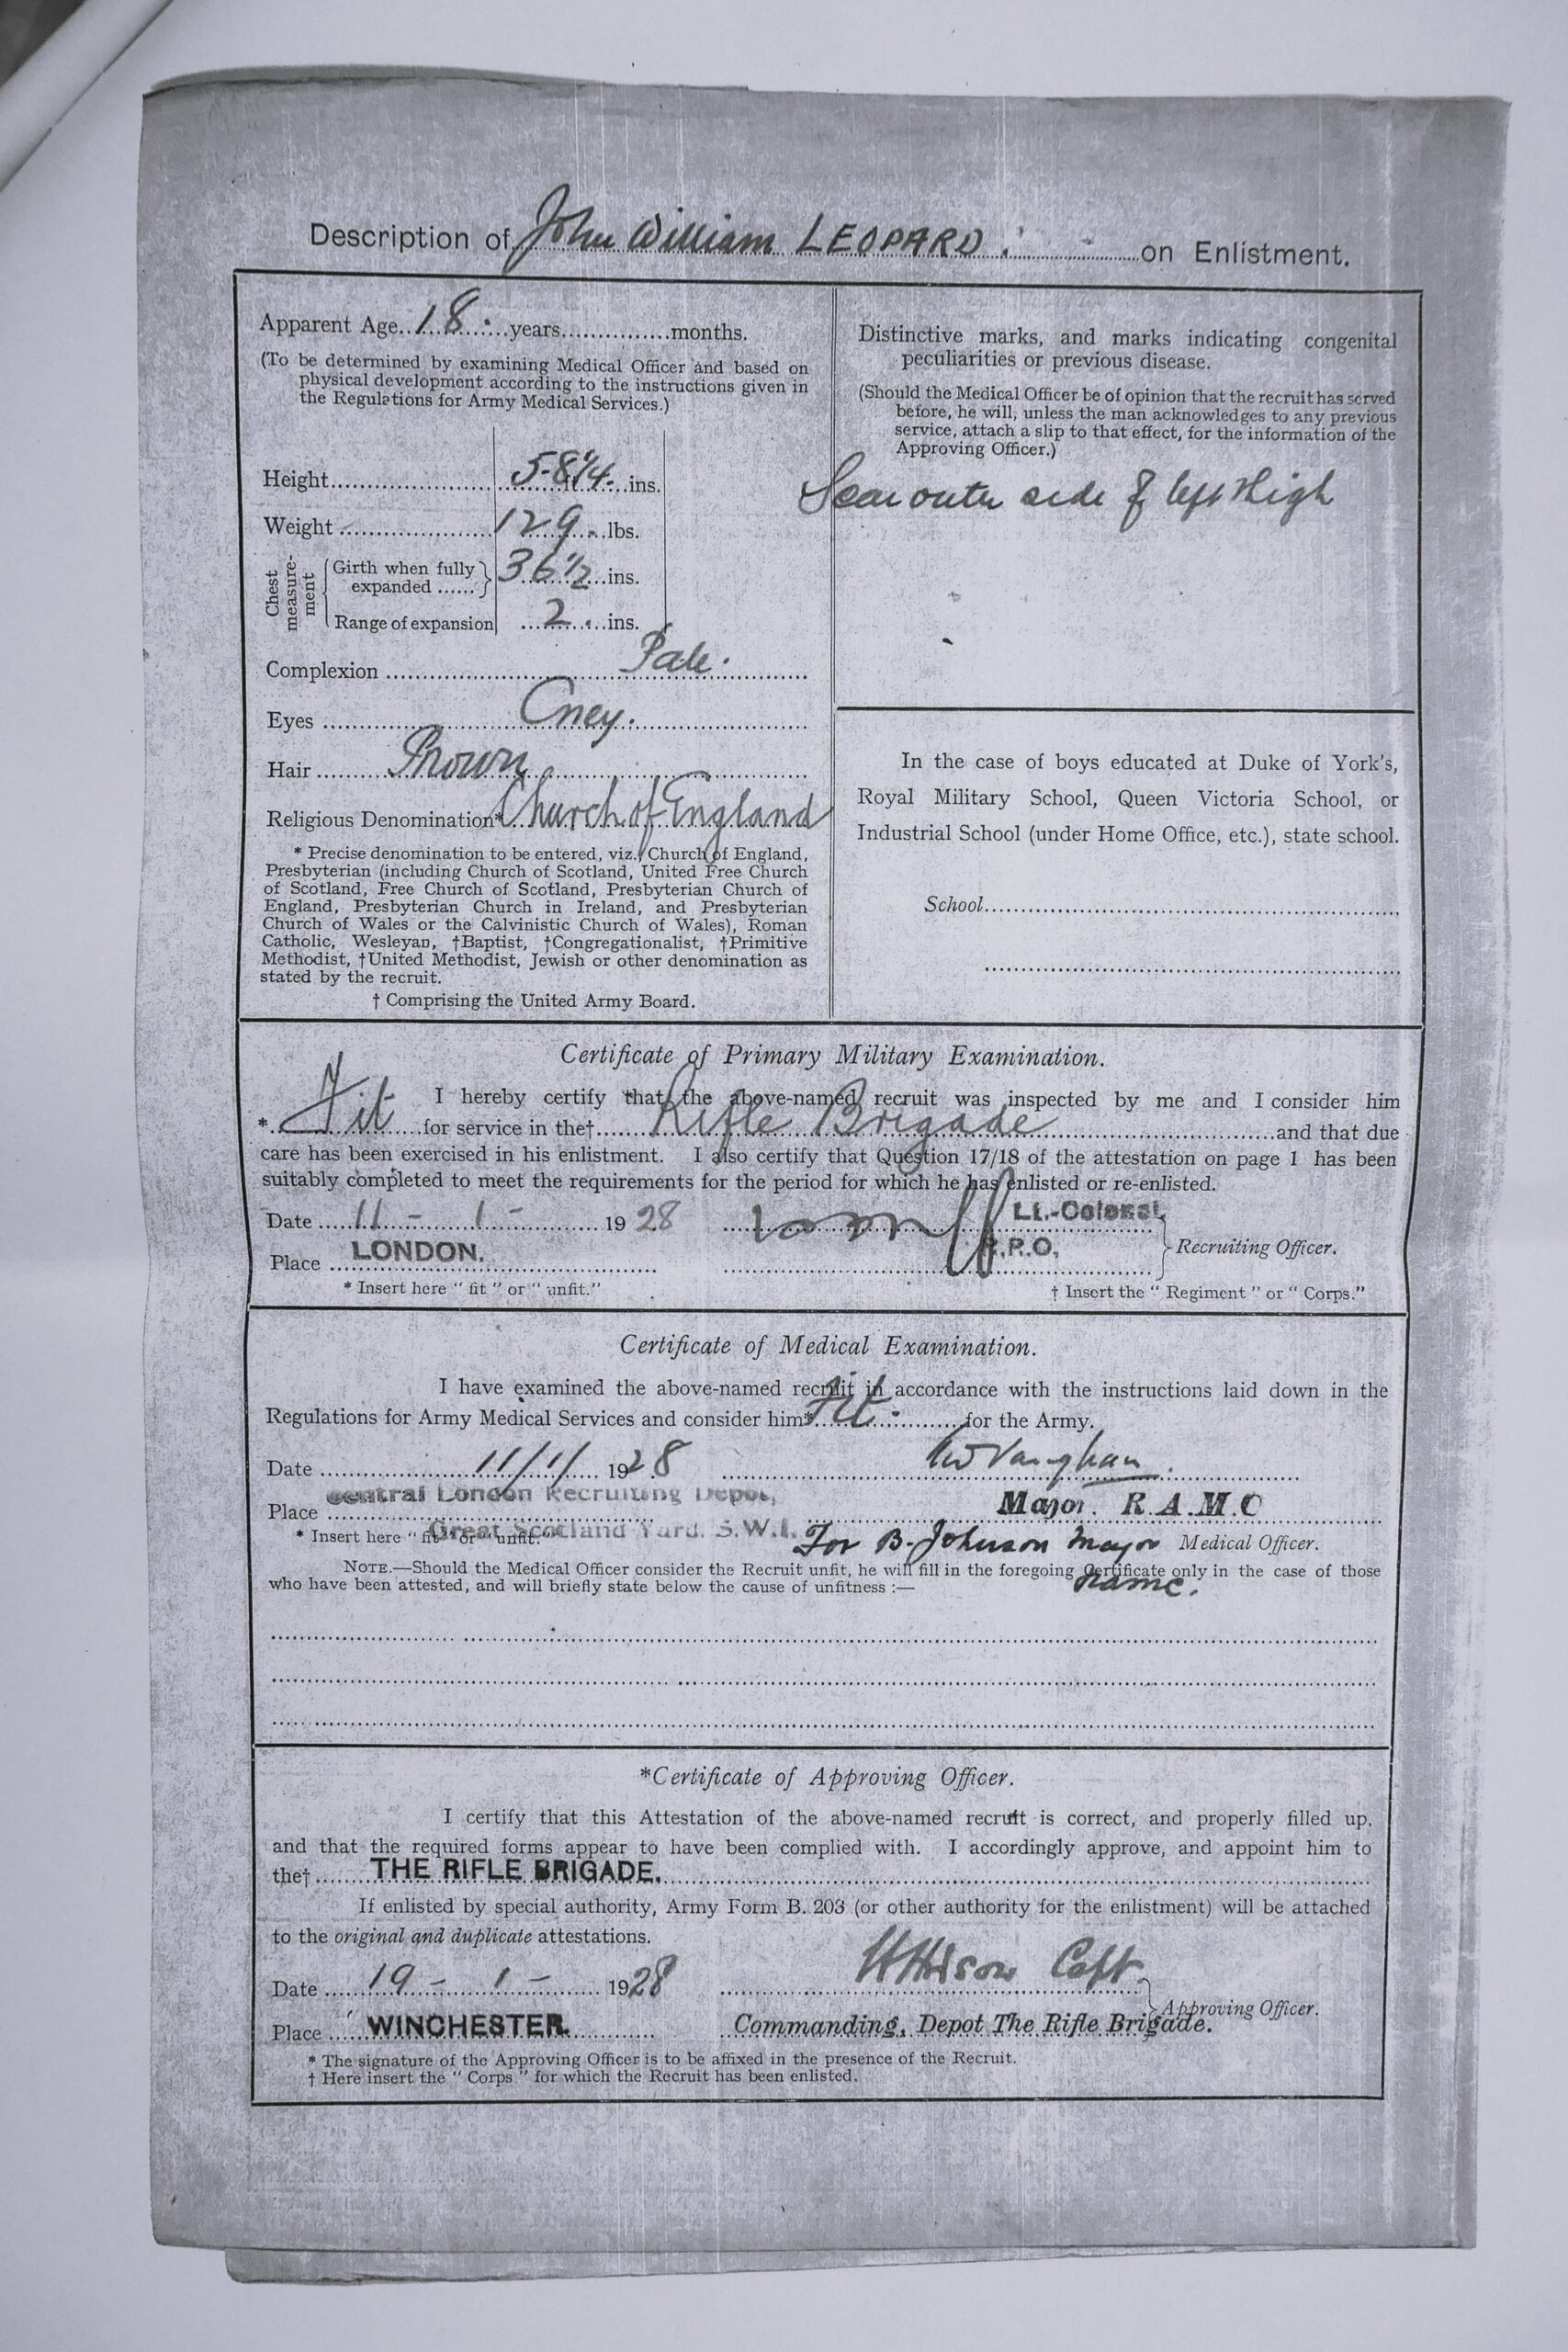 Description of John William LEOPARD. on Enlistment.
Apparent Age 18. years months.
(To be determined by examining Medical Officer and based on
physical development according to the instructions given in
the Regulations for Army Medical Services.)
Height 5-8¼ ins.
Weight 129 lbs.
Chest measure-ment
Girth when fully
expanded ...... 36½ ins.
Range of expansion 2 ins.
Complexion Pale.
Eyes Grey.
Hair Brown
Religious Denomination* Church of England
* Precise denomination to be entered, viz., Church of England,
Presbyterian (including Church of Scotland, United Free Church
of Scotland, Free Church of Scotland, Presbyterian Church of
England, Presbyterian Church in Ireland, and Presbyterian
Church of Wales or the Calvinistic Church of Wales), Roman
Catholic, Wesleyan, †Baptist, †Congregationalist, †Primitive
Methodist, †United Methodist, Jewish or other denomination as
stated by the recruit.
† Comprising the United Army Board.
Distinctive marks, and marks indicating congenital
peculiarities or previous disease.
(Should the Medical Officer be of opinion that the recruit has served
before, he will, unless the man acknowledges to any previous
service, attach a slip to that effect, for the information of the
Approving Officer.)
Scar outer side of left thigh
In the case of boys educated at Duke of York's,
Royal Military School, Queen Victoria School, or
Industrial School (under Home Office, etc.), state school.
School
Certificate of Primary Military Examination.
I hereby certify that the above-named recruit was inspected by me and I consider him
* Fit for service in the† Rifle Brigade and that due
care has been exercised in his enlistment. I also certify that Question 17/18 of the attestation on page 1 has been
suitably completed to meet the requirements for the period for which he has enlisted or re-enlisted.
Date 11 - 1 - 1928 Lt.-Colonel,
Place LONDON. R.P.O, Recruiting Officer.
* Insert here "fit" or "unfit." † Insert the "Regiment" or "Corps."
Certificate of Medical Examination.
I have examined the above-named recruit in accordance with the instructions laid down in the
Regulations for Army Medical Services and consider him* Fit. for the Army.
Date 11/1/1928 Vaughan
Place Central London Recruiting Depot, Major. R.A.M.C
Great Scotland Yard. S.W.1.
* Insert here "fit" or "unfit." For B. Johnson Major Medical Officer.
Ramc.
NOTE.—Should the Medical Officer consider the Recruit unfit, he will fill in the foregoing Certificate only in the case of those
who have been attested, and will briefly state below the cause of unfitness :—
*Certificate of Approving Officer.
I certify that this Attestation of the above-named recruit is correct, and properly filled up,
and that the required forms appear to have been complied with. I accordingly approve, and appoint him to
the† THE RIFLE BRIGADE.
If enlisted by special authority, Army Form B. 203 (or other authority for the enlistment) will be attached
to the original and duplicate attestations.
Date 19 - 1 - 1928 Capt.
Approving Officer.
Place WINCHESTER. Commanding, Depot The Rifle Brigade.
* The signature of the Approving Officer is to be affixed in the presence of the Recruit.
† Here insert the "Corps" for which the Recruit has been enlisted.